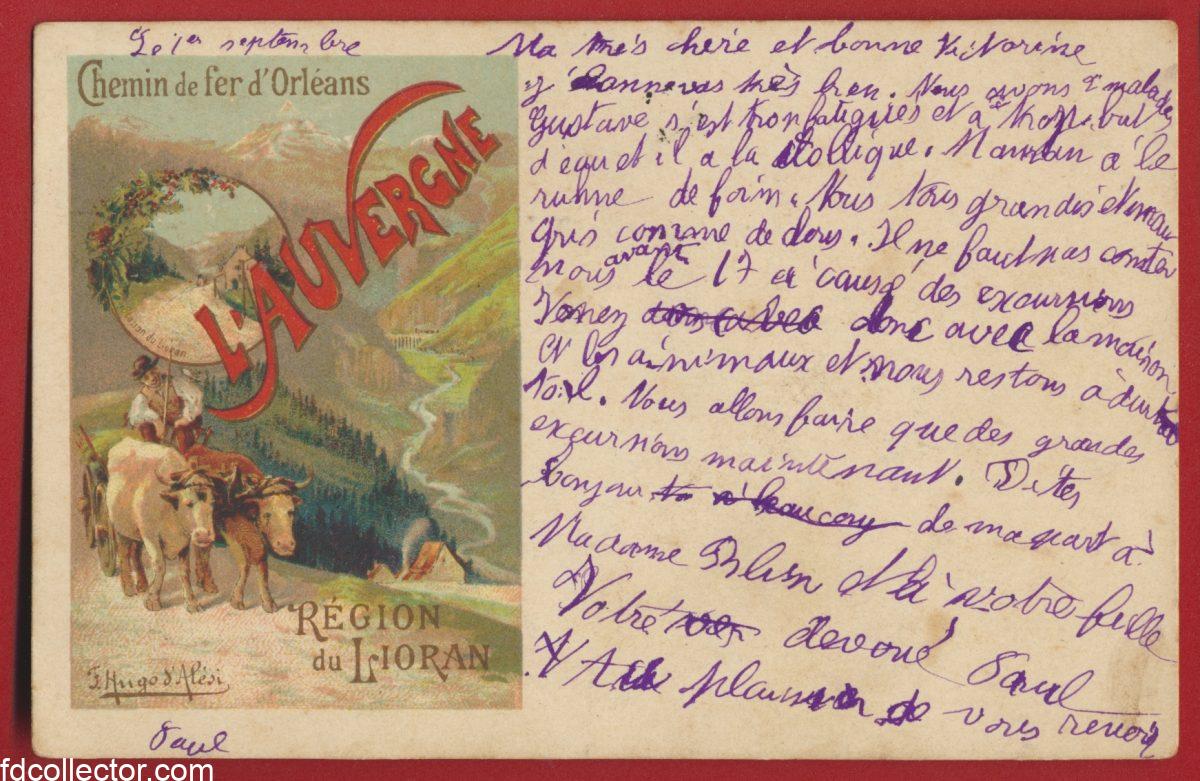 Le 1er septembre
Chemin de fer d'Orléans
L'AUVERGNE
du Lioran
RÉGION
du LIORAN
F. Hugo d'Alési
Paul
Ma très chère et bonne Victorine
très bien. Nous avons 2 malades
Gustave s'est trop fatigués et à trop but
d'eau et il a la collique. Maman à le
rhume de foin. Nous tous grandis et
gris comme de
nous avant le 17 à cause des excursions
Venez donc avec la maison
et les animaux et nous restons à
Nous allons faire que des grandes
excursions maintenant. Dites
bonjour de ma part à
Madame et à votre fille
Votre devoué Paul
Au plaisir de vous revoir
fdcollector.com